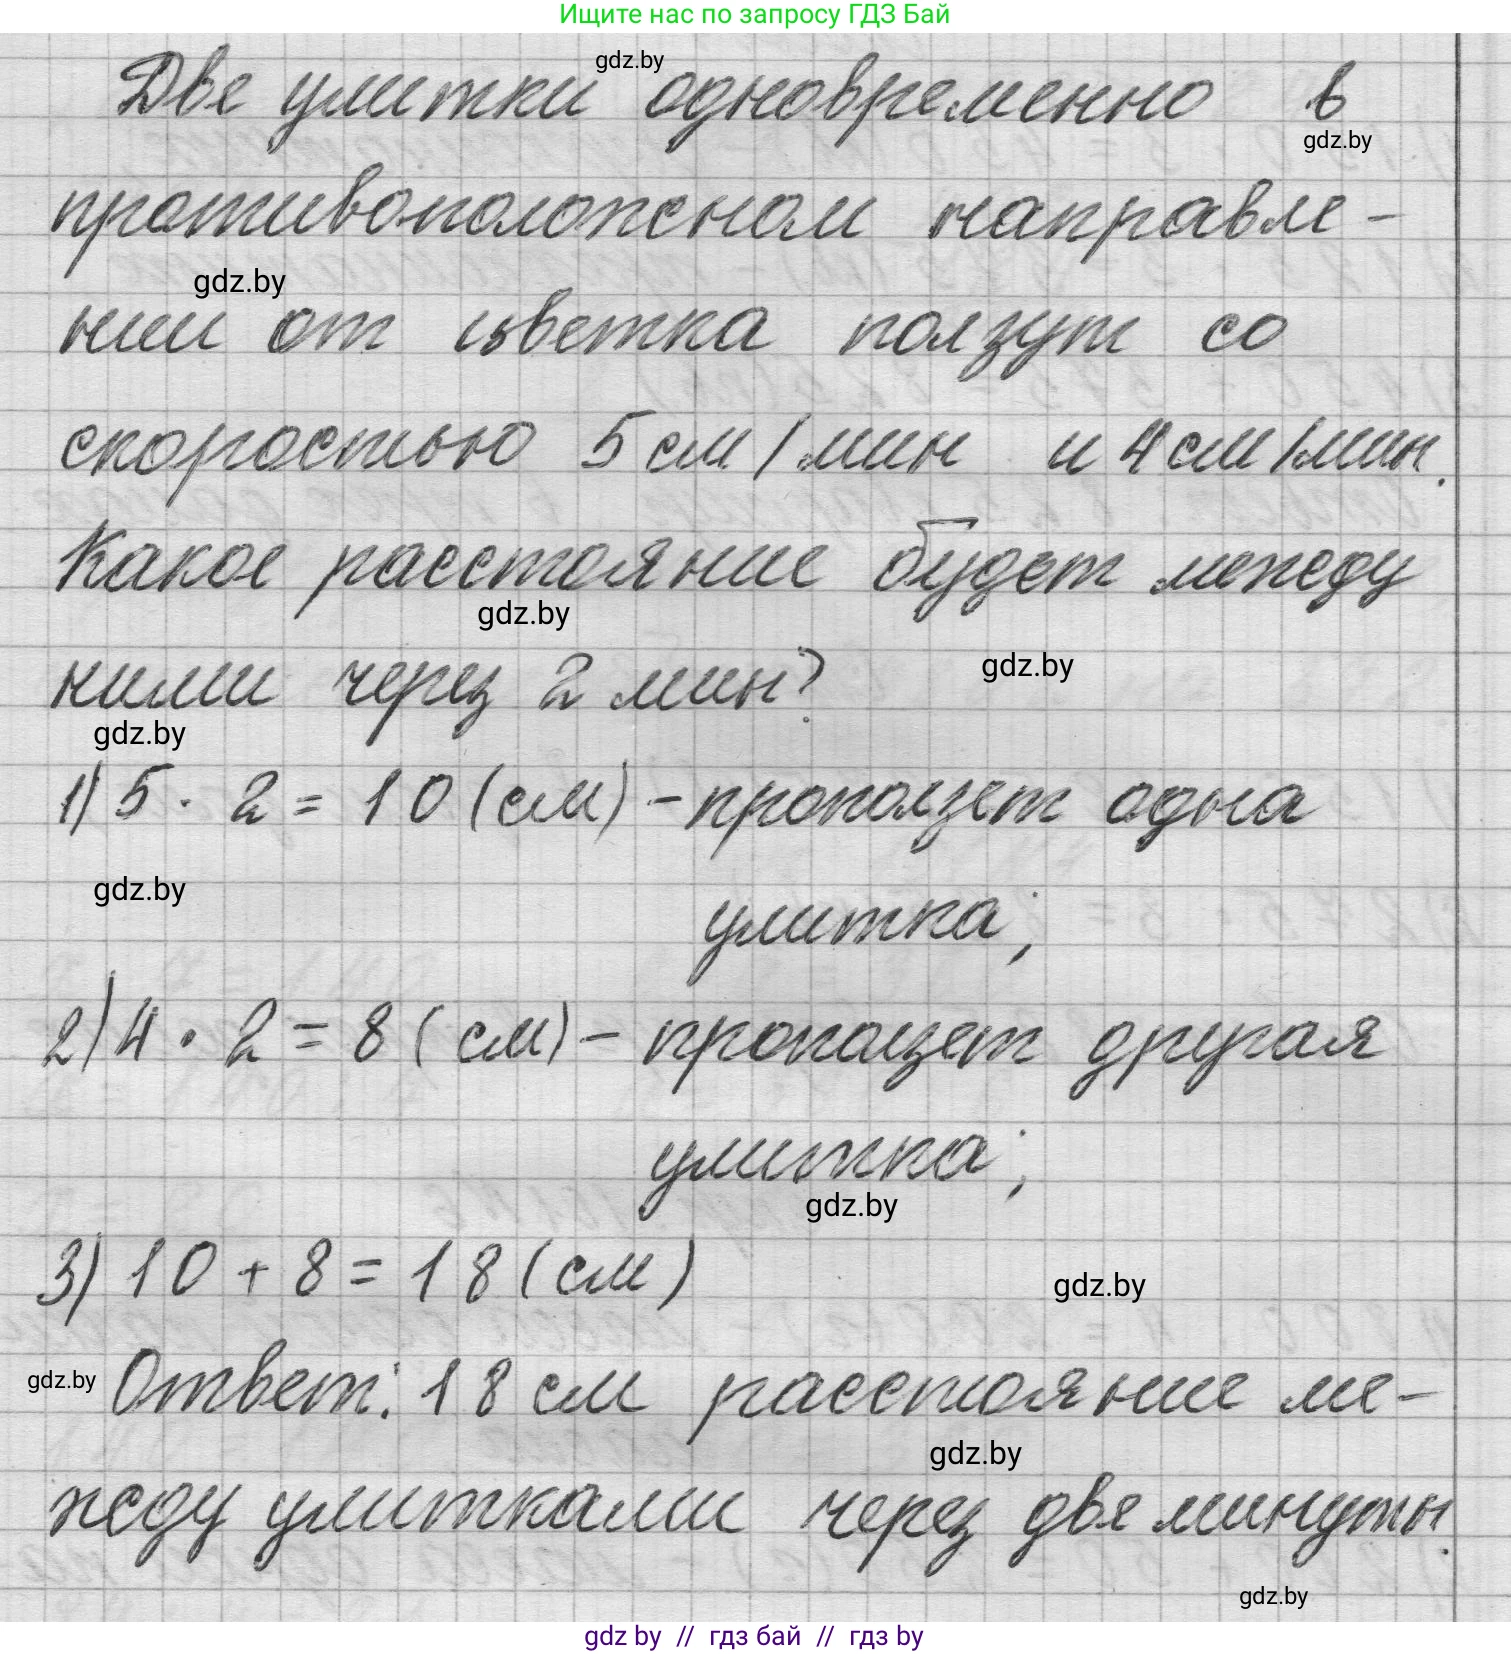 Ищите нас по запросу ГДЗ Бай
gdz.by
Две улитки одновременно в
gdz.by
противоположном направле-
gdz.by
нии от цветка ползут со
скоростью 5 см/мин и 4 см/мин.
Какое расстояние будет между
gdz.by
ними через 2 мин?
gdz.by
gdz.by
1) 5 · 2 = 10 (см) - проползет одна
gdz.by
улитка;
2) 4 · 2 = 8 (см) - проползет другая
улитка;
gdz.by
3) 10 + 8 = 18 (см)
gdz.by
gdz.by
Ответ: 18 см расстояние ме-
gdz.by
жду улитками через две минуты.
gdz.by
gdz by // гдз бай // гдз by